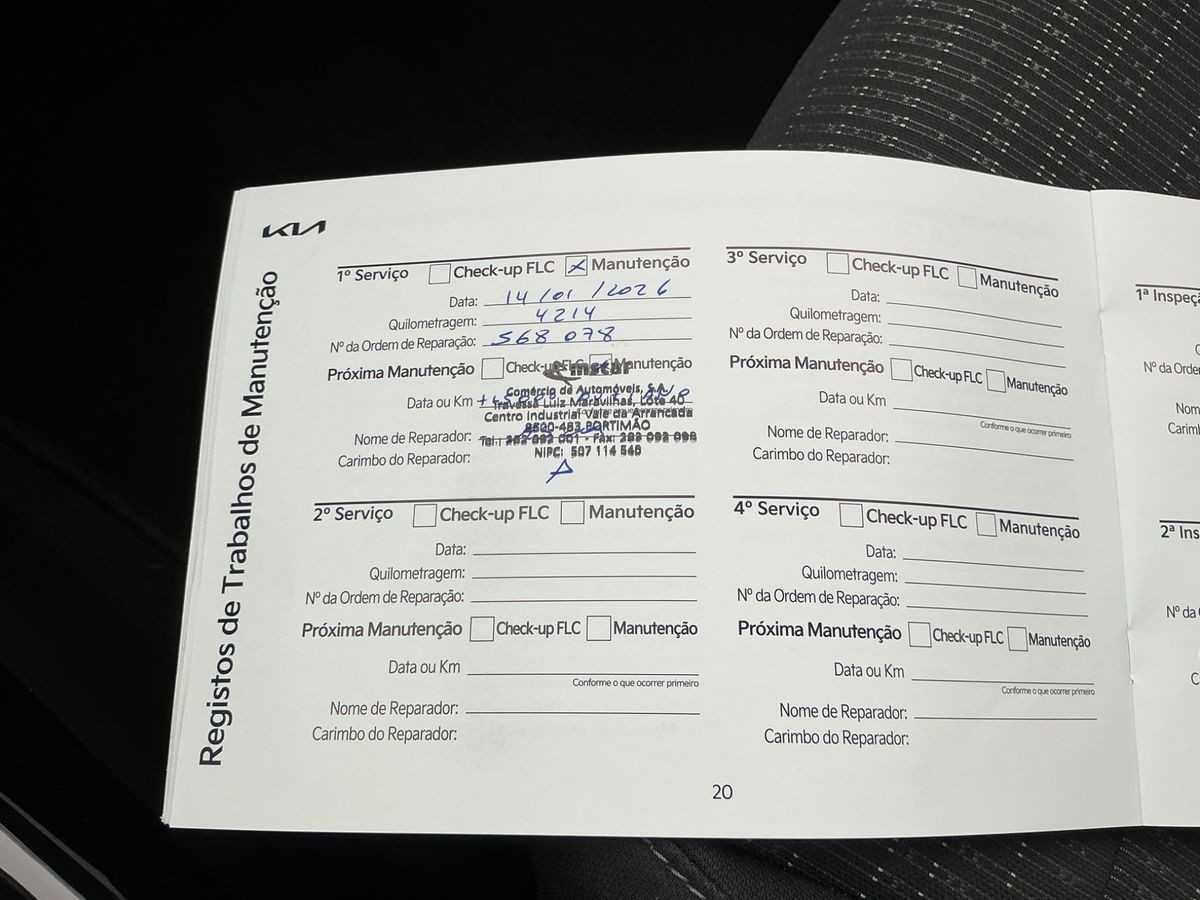 KIA
Registos de Trabalhos de Manutenção
1º Serviço Check-up FLC Manutenção
Data: 14/01/2026
Quilometragem: 4214
Nº da Ordem de Reparação: 568 078
Próxima Manutenção Check-up FLC Manutenção
Data ou Km
Nome de Reparador:
Carimbo do Reparador:
Comércio de Automóveis, S.A.
Travessa Luiz Maravilhas, Lote 40
Centro Industrial Vale da Arrancada
8500-483 PORTIMÃO
Tel.: 282 092 001 - Fax: 282 092 099
NIPC: 507 114 540
2º Serviço Check-up FLC Manutenção
Data:
Quilometragem:
Nº da Ordem de Reparação:
Próxima Manutenção Check-up FLC Manutenção
Data ou Km
Conforme o que ocorrer primeiro
Nome de Reparador:
Carimbo do Reparador:
3º Serviço Check-up FLC Manutenção
Data:
Quilometragem:
Nº da Ordem de Reparação:
Próxima Manutenção Check-up FLC Manutenção
Data ou Km
Conforme o que ocorrer primeiro
Nome de Reparador:
Carimbo do Reparador:
4º Serviço Check-up FLC Manutenção
Data:
Quilometragem:
Nº da Ordem de Reparação:
Próxima Manutenção Check-up FLC Manutenção
Data ou Km
Conforme o que ocorrer primeiro
Nome de Reparador:
Carimbo do Reparador:
20
1ª Inspeç
Nº da Order
Carimb
2ª Ins
Nº da O